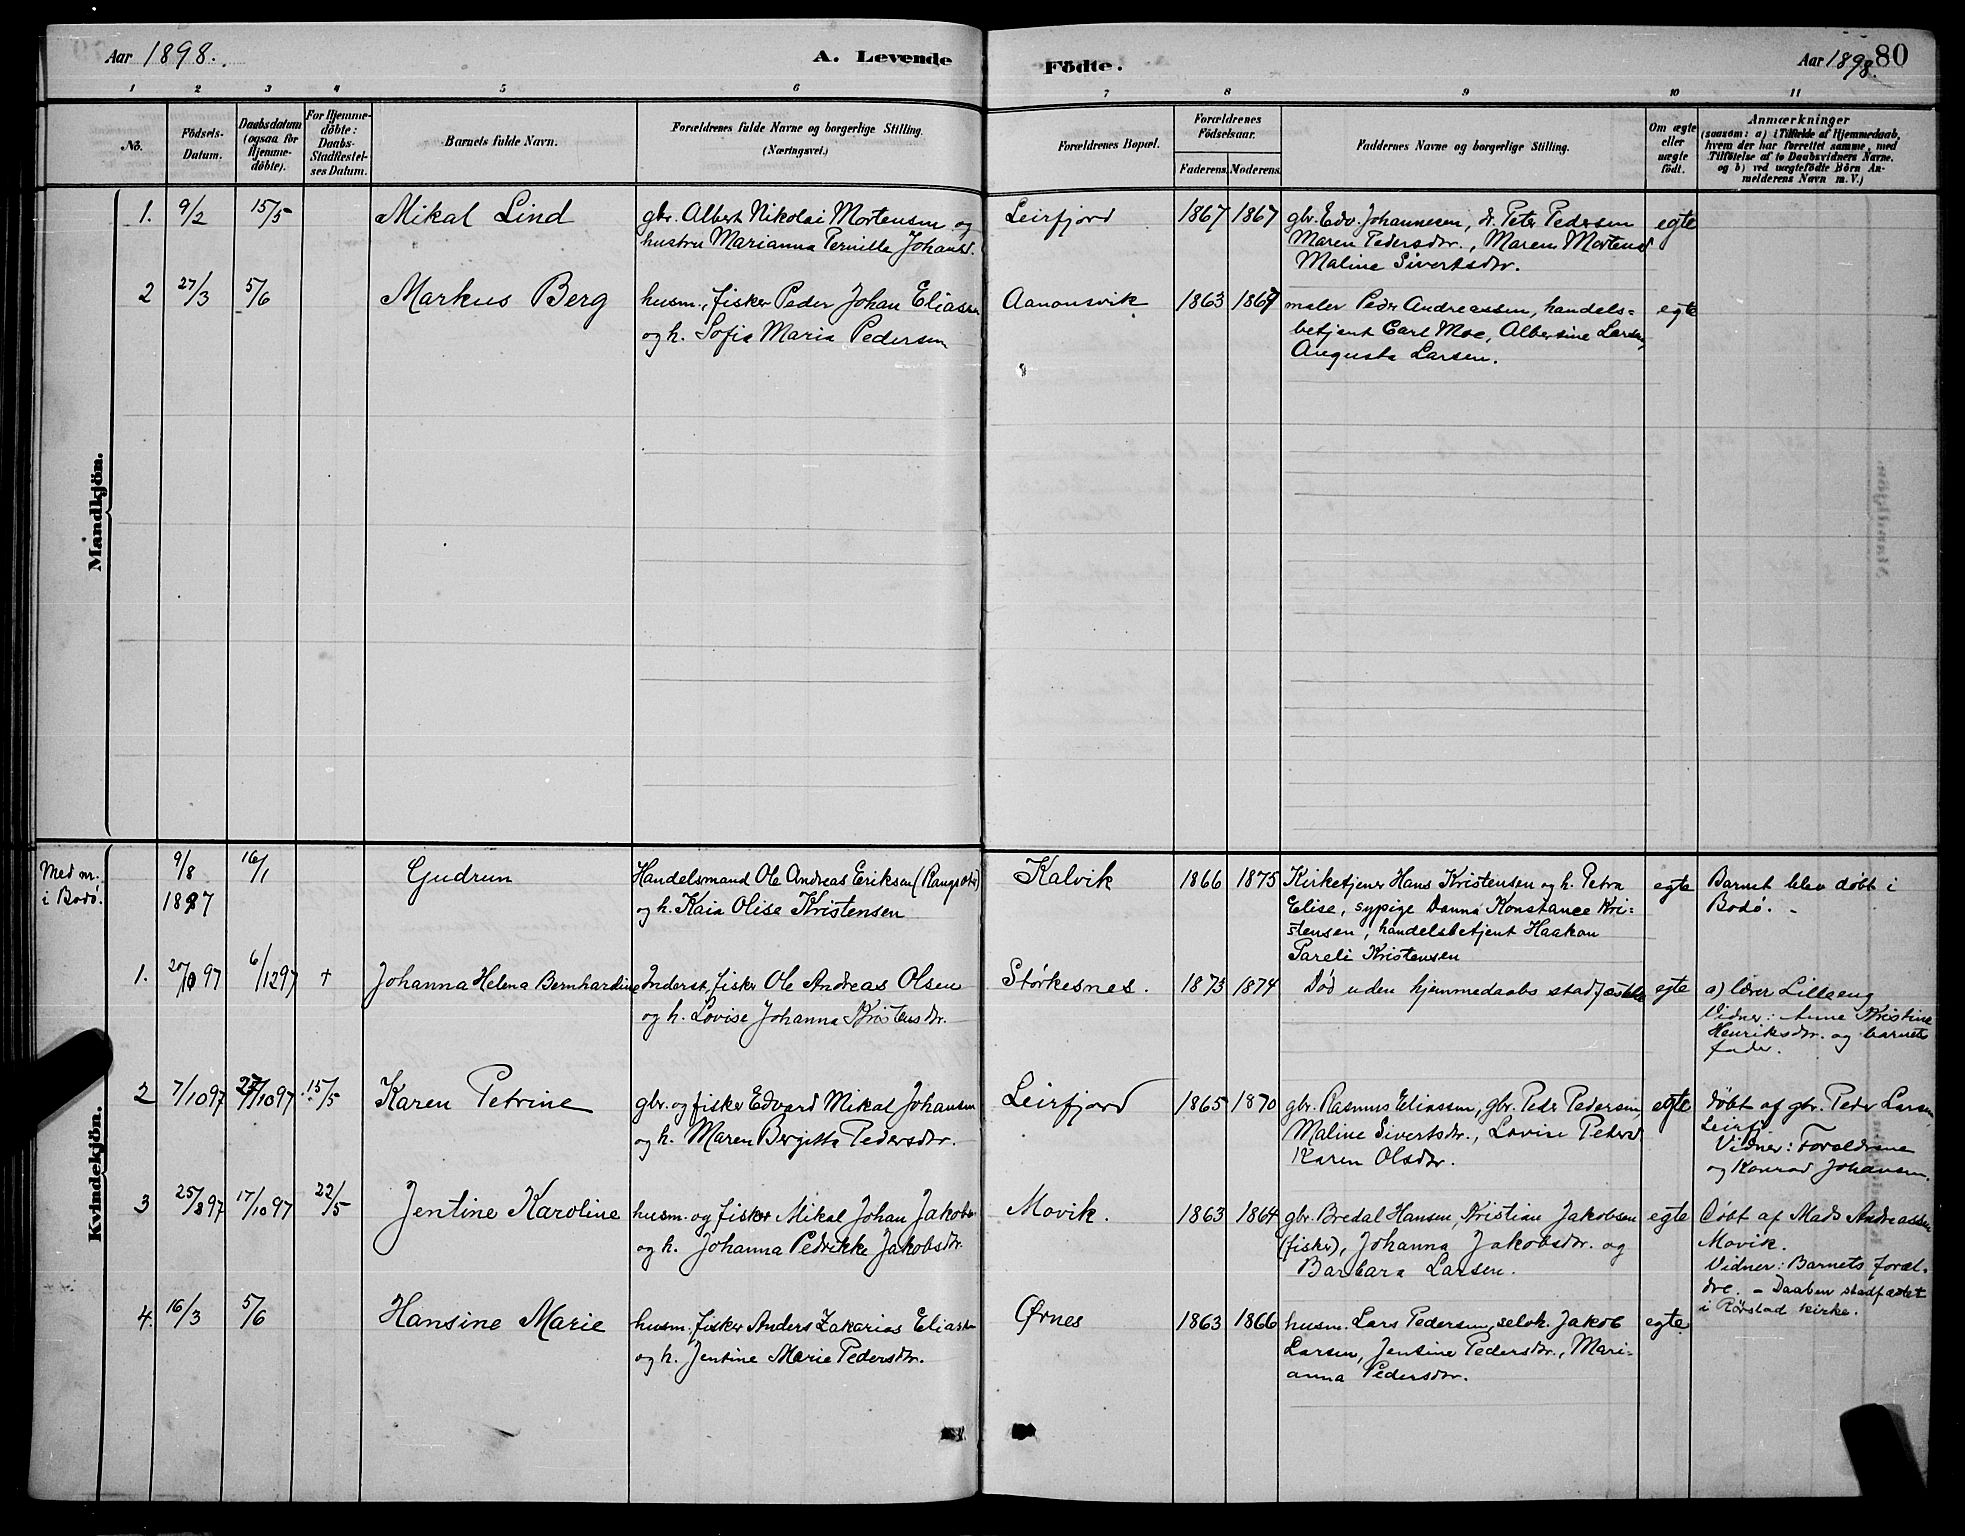 Aar 1898.
A. Levende
Födte.
Aar 1898.
80
1 2 3 4 5 6 7 8 9 10 11
No.
Födsels-
Datum.
Daabsdatum
(ogsaa for
Hjemme-
döbte).
For Hjemme-
döbte:
Daabs-
Stadfæstel-
ses Datum.
Barnets fulde Navn.
Forældrenes fulde Navne og borgerlige Stilling.
(Næringsvei.)
Forældrenes Bopæl.
Forældrenes
Födselsaar.
Faderens. Moderens.
Faddernes Navne og borgerlige Stilling.
Om ægte
eller
uægte
födt.
Anmærkninger
(saasom: a) i Tilfælde af Hjemmedaab,
hvem der har forrettet samme, med
Tilföielse af to Daabsvidners Navne.
og b) ved uægtefödte Börn An-
melderens Navn m. V.)
Mandkjön.
1. 9/2 15/5 Mikal Lind
gbr. Albert Nikolai Mortensen og
hustru Marianna Pernilla Johansd.
Leirfjord 1867 1867
gbr. Edv. Johannesen, dr. Peter Pedersen
Maren Pedersdtr., Maren Mortensd
Maline Sivertsdtr.
egte
2 27/3 5/6 Markus Berg
husm., fisker Peder Johan Eliassen
og h. Sofia Maria Pedersen
Aanonsvik 1863 1867
maler Peder Andreassen, handels-
betjent Carl Moe, Albertine Larsen,
Augusta Larsen.
egte
Kvindekjön.
Med nr.
i Bodö.
9/8
1897
16/1 Gudrun
Handelsmand Ole Andreas Eriksen
og h. Kaia Olise Kristensen
Kalvik 1866 1875
Kirketjener Hans Kristensen og h. Petra
Elise, sypige Danna Konstance Kri-
stensen, handelsbetjent Haakon
Pareli Kristensen
egte
Barnet blev döbt i
Bodö. -
1. 97 6/1297 + Johanna Helena Bernhardine
Inderst, fisker Ole Andreas Olsen
og h. Lovise Johanna Kristensdtr.
Størkesnes. 1873 1874
Död uden hjemmedaabs stadfæstelse
egte
a) lærer Lilleeng
Vidner: Anne Kristine
Henriksdtr. og barnets
fader.
2 7/1097 /1097 15/5 Karen Petrine
gbr. og fisker Edvard Mikal Johansen
og h. Maren Bergitta Pedersdtr.
Leirfjord 1865 1870
gbr. Rasmus Eliassen, gbr. Peder Pedersen
Maline Sivertsdtr., Lovise Pedersd
Karen Olsdtr.
egte
döbt af gbr. Peder Larsen
Leirfj.
Vidner: Forældrene
og Konrad Johansen.
3 25/897 17/1097 22/5 Jentine Karoline
husm. og fisker Mikal Johan Jakobs.
og h. Johanna Pedrikke Jakobsdtr.
Movik. 1863 1864
gbr. Bredal Hansen, Kristian Jakobsen
(fisker), Johanna Jakobsdtr. og
Barbara Larsen.
egte
Döbt af Mads Andreassen
Movik.
Vidner: Barnets foræl-
dre. - Daaben stadfæstet
i Rørstad kirke.
4. 16/3 5/6 Hansine Marie
husm. fisker Anders Zakarias Eliassen
og h. Jentine Marie Pedersdtr.
Ørnes 1863 1866
husm. Lars Pedersen, selvk. Jakob
Larsen, Jensine Pedersdtr., Mari-
anna Pedersdtr.
egte